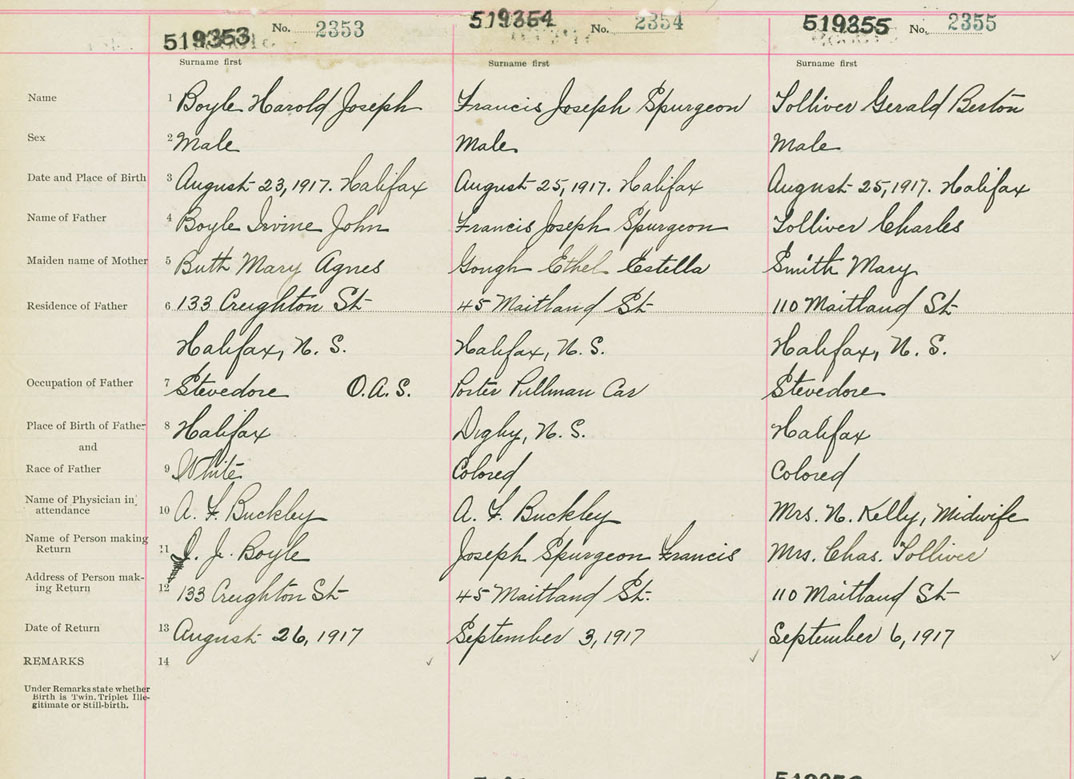 519353 No. 2353 519354 No. 2354 519355 No. 2355
Surname first Surname first Surname first
Name 1 Boyle Harold Joseph Francis Joseph Spurgeon Tolliver Gerald Berton
Sex 2 Male Male Male
Date and Place of Birth 3 August 23, 1917. Halifax August 25, 1917. Halifax August 25, 1917. Halifax
Name of Father 4 Boyle Irvine John Francis Joseph Spurgeon Tolliver Charles
Maiden name of Mother 5 Buth Mary Agnes Gough Ethel Estella Smith Mary
Residence of Father 6 133 Creighton St 45 Maitland St 110 Maitland St
Halifax, N. S. Halifax, N. S. Halifax, N. S.
Occupation of Father 7 Stevedore O.A.S. Porter Pullman Car Stevedore
Place of Birth of Father 8 Halifax Digby, N. S. Halifax
and
Race of Father 9 White Colored Colored
Name of Physician in attendance 10 A. F. Buckley A. F. Buckley Mrs. N. Kelly, Midwife
Name of Person making Return 11 I. J. Boyle Joseph Spurgeon Francis Mrs. Chas. Tolliver
Address of Person mak-
ing Return 12 133 Creighton St 45 Maitland St. 110 Maitland St
Date of Return 13 August 26, 1917 September 3, 1917 September 6, 1917
REMARKS 14
Under Remarks state whether
Birth is Twin, Triplet Ille-
gitimate or Still-birth.